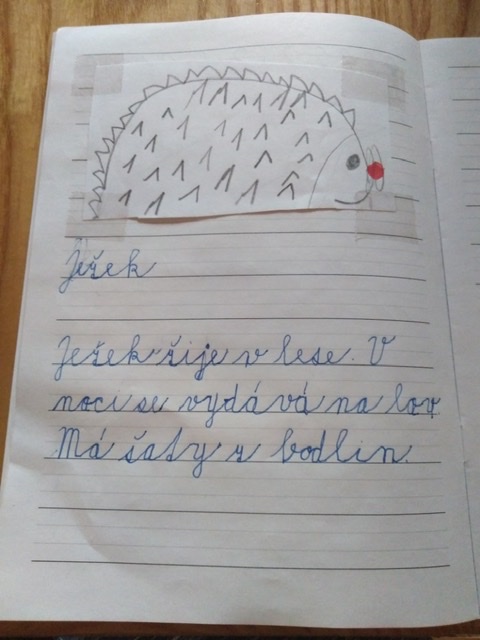 Ježek
Ježek žije v lese. V
noci se vydává na lov.
Má šaty z bodlin.